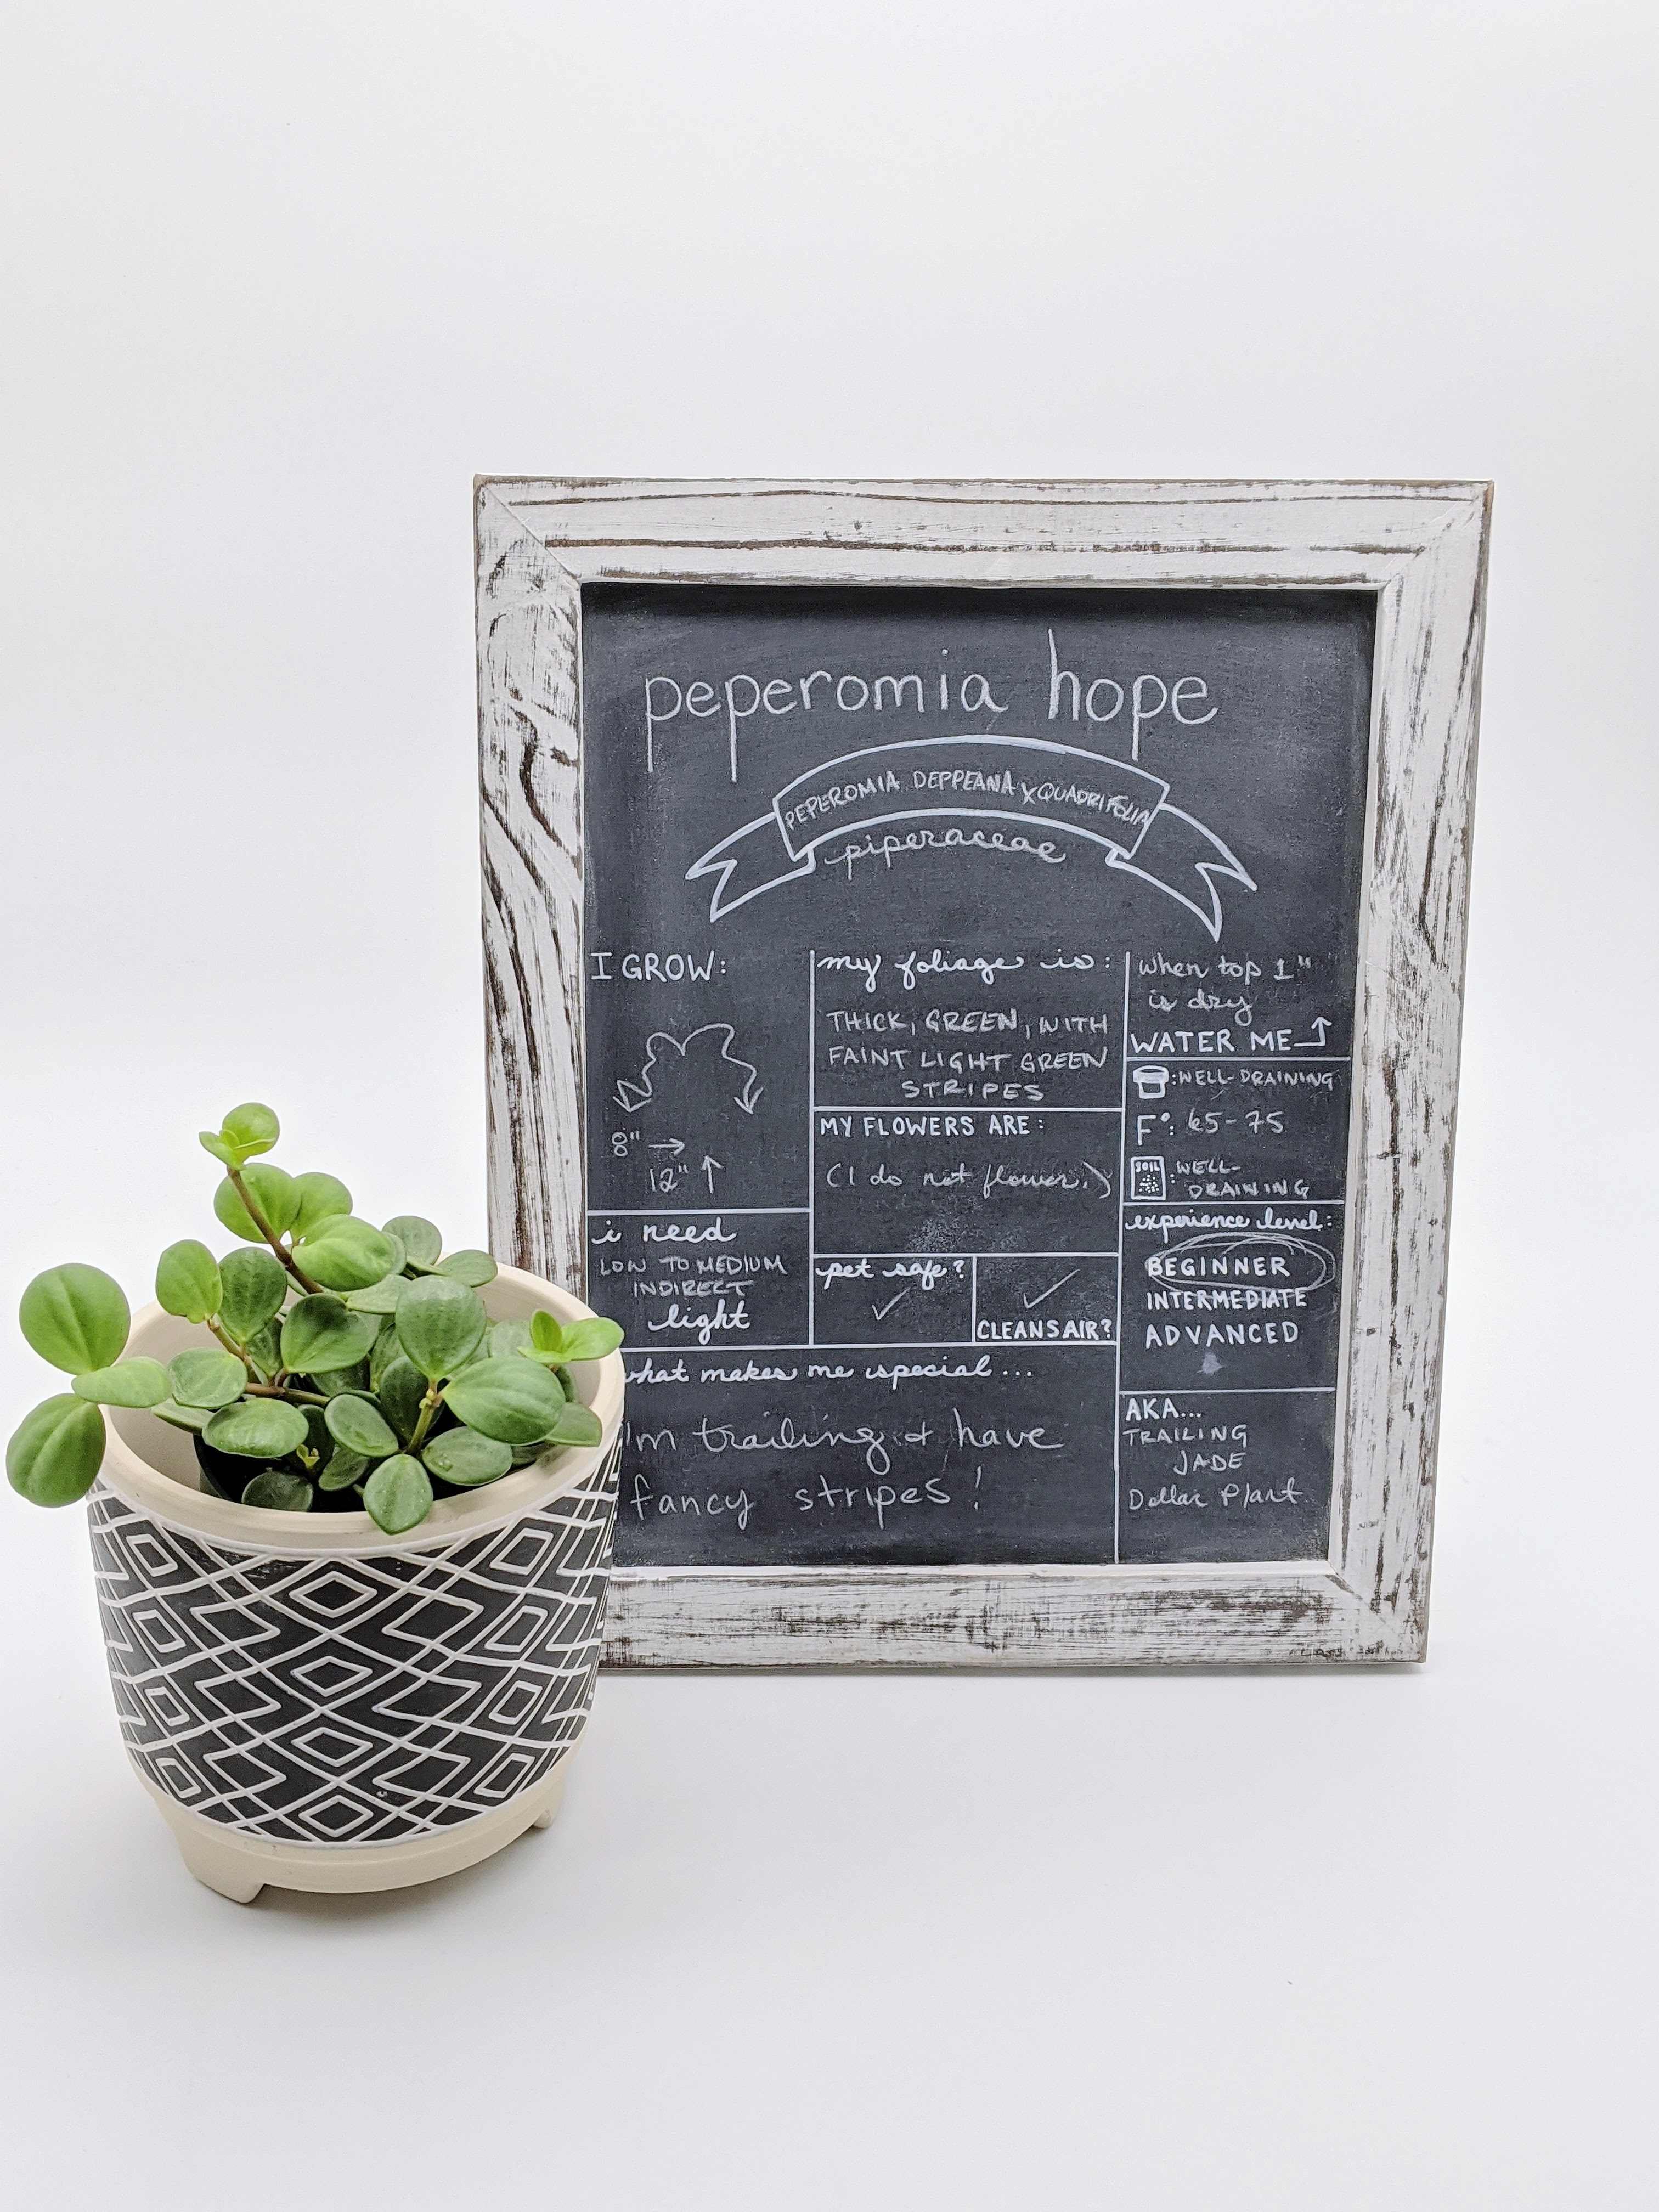 peperomia hope
PEPEROMIA DEPPEANA X QUADRIFOLIA
piperaceae
I GROW:
8" →
12" ↑
i need
LOW TO MEDIUM
INDIRECT
light
my foliage is:
THICK, GREEN, WITH
FAINT LIGHT GREEN
STRIPES
MY FLOWERS ARE:
(I do not flower.)
pet safe?
✓
✓
CLEANS AIR?
when top 1"
is dry
WATER ME
: WELL-DRAINING
F°: 65-75
SOIL
: WELL-
DRAINING
experience level:
BEGINNER
INTERMEDIATE
ADVANCED
what makes me special...
I'm trailing & have
fancy stripes!
AKA...
TRAILING
JADE
Dollar Plant